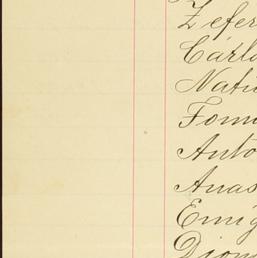 Zefer
Carlo
Nati
Tom
Anto
Anas
Emig
Diom